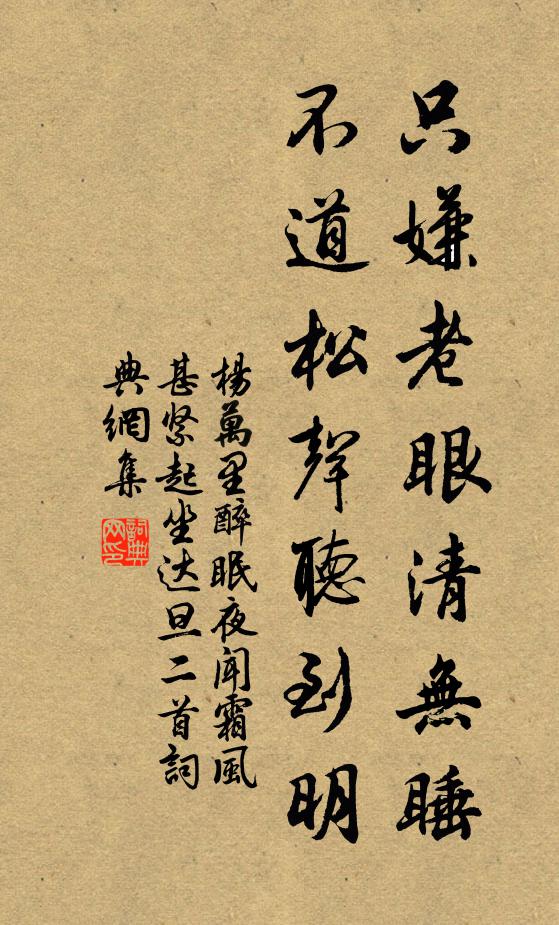 只嫌老眼清無睡
不道松聲聽到明
楊萬里醉眠夜聞霜風
甚緊起坐达旦二首詞
典網集
詞典网印